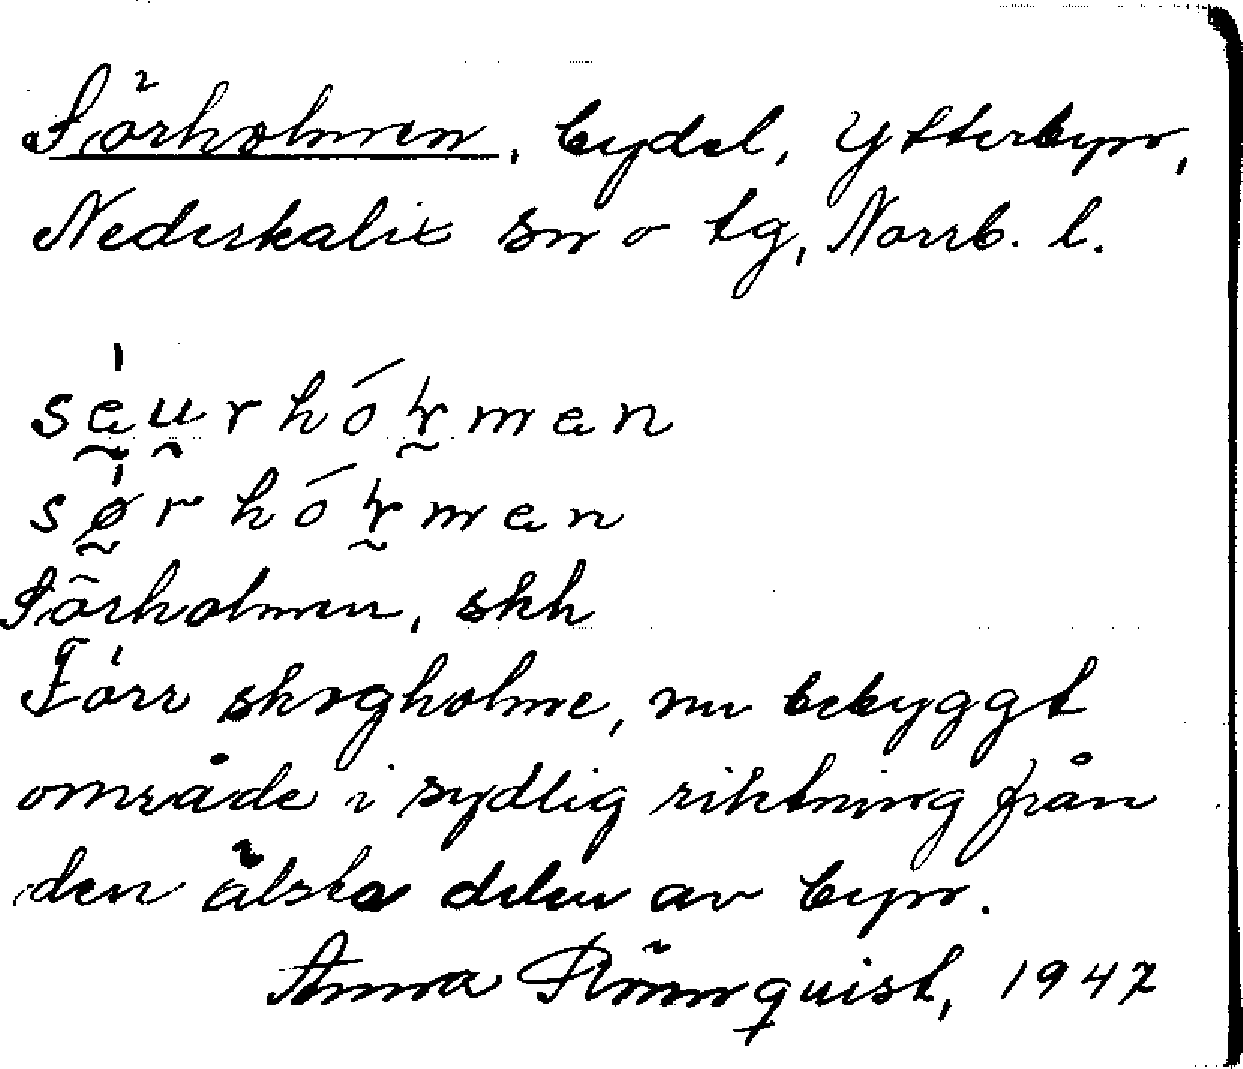 Sörholmen, bydel, Ytterbyn,
Nederkalix sn o tg, Norrb. l.
Sörholmen, skh
Förr skogholme, nu bebyggt
område i sydlig riktning från
den älsta delen av byn.
Anna Rönnquist, 1947